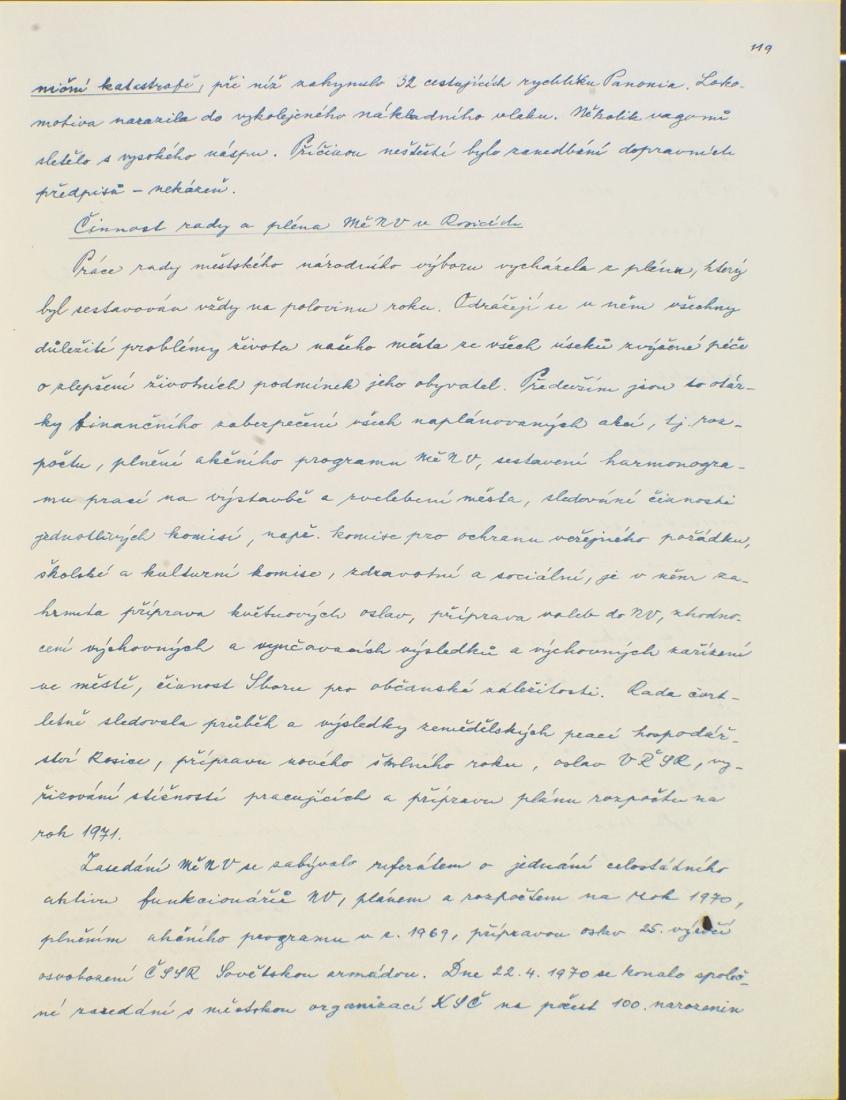 119
niční katastrofě, při níž zahynulo 32 cestujících rychlíku Panonia. Loko-
motiva narazila do vykolejeného nákladního vlaku. Několik vagonů
sletělo s vysokého náspu. Příčinou neštěstí bylo zanedbání dopravních
předpisů – nekázeň.
Činnost rady a pléna MěNV v Rosicích
Práce rady městského národního výboru vycházela z plánu, který
byl sestavován vždy na polovinu roku. Odrážejí se v něm všechny
důležité problémy života našeho města ze všech úseků zvýšené péče
o zlepšení životních podmínek jeho obyvatel. Především jsou to otáz-
ky finančního zabezpečení všech naplánovaných akcí, tj. roz-
počtu, plnění akčního programu MěNV, sestavení harmonogra-
mu prací na výstavbě a zvelebení města, sledování činnosti
jednotlivých komisí, např. komise pro ochranu veřejného pořádku,
školské a kulturní komise, zdravotní a sociální, je v něm za-
hrnuta příprava květnových oslav, příprava voleb do NV, zhodno-
cení výchovných a vyučovacích výsledků a výchovných zařízení
ve městě, činnost Sboru pro občanské záležitosti. Rada čtvrt-
letně sledovala průběh a výsledky zemědělských prací hospodář-
ství Rosice, přípravu nového školního roku, oslav VŘSR, vy-
řizování stížností pracujících a přípravu plánu rozpočtu na
rok 1971.
Zasedání MěNV se zabývalo referátem o jednání celostátního
aktivu funkcionářů NV, plánem a rozpočtem na rok 1970,
plněním akčního programu v r. 1969, přípravou oslav 25. výročí
osvobození ČSSR Sovětskou armádou. Dne 22. 4. 1970 se konalo společ-
né zasedání s městskou organizací KSČ na počest 100. narozenin